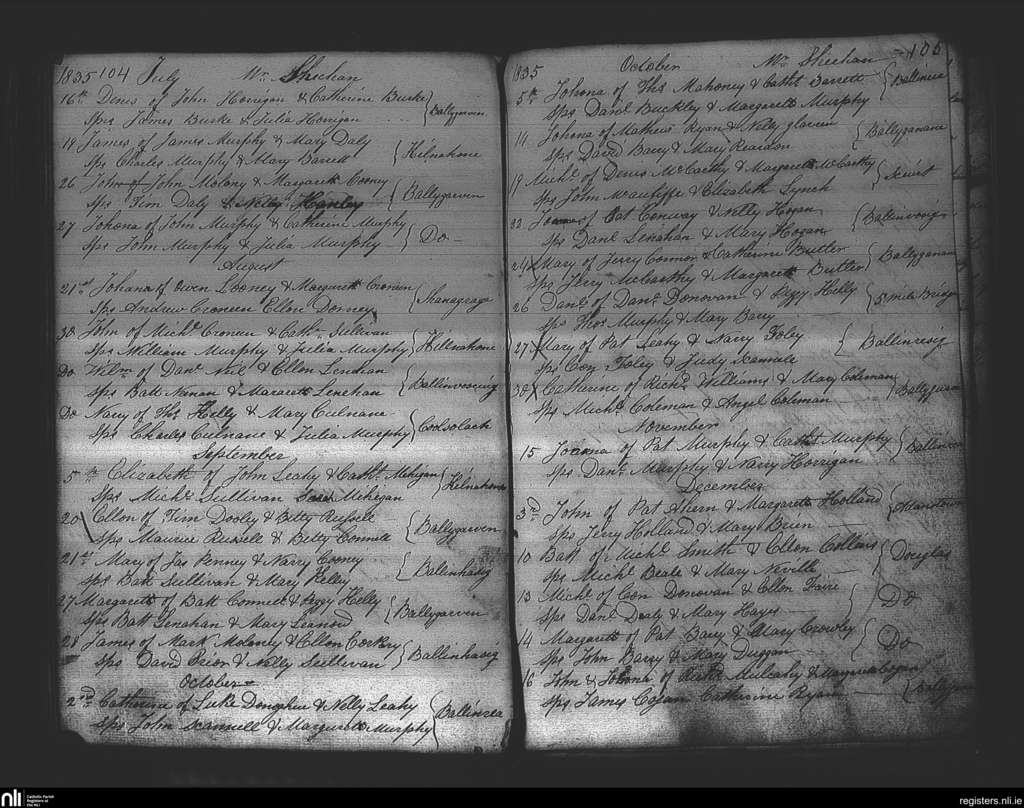 1835 104 July Wm Sheehan
16th Denis of John Horrigan & Catherine Burke
Sps James Burke & Julia Horrigan Ballygarven
19 James of James Murphy & Mary Daly
Sps Charles Murphy & Mary Barrett Kilnahone
26 John of John Molony & Margarett Cooney
Sps Tim Daly & Nelly Hanley Ballygarven
27 Johona of John Murphy & Catherine Murphy
Sps John Murphy & Julia Murphy Do
August
21st Johana of Owen Looney & Margarett Croneen
Sps Andrew Croneen Ellen Dorney Shanagrage
30 John of Michl Croneen & Cathe Sullivan
Sps William Murphy & Julia Murphy Killnahone
Do Wilm of Danl Neil & Ellen Linehan
Sps Batt Nunan & Mararett Linehan Ballinvooreig
Do Nary of Ths Kelly & Mary Culnane
Sps Charles Culnane & Julia Murphy Coolsolach
September
5th Elizabeth of John Leahy & Catht Mehigan
Sps Michl Sullivan Mihegan Kilnahone
20 Ellen of Tim Dooley & Betty Russell
Sps Maurice Russell & Betty Connell Ballygarven
21st Mary of Jas Penney & Narry Cooney
Sps Batt Sullivan & Mary Kelley Ballinhasig
27 Margarett of Batt Connell & Peggy Kelly
Sps Batt Lenahan & Mary Leonord Ballygarven
28 James of Mark Molony & Ellen Corkery
Sps David Brion & Nelly Sullivan Ballinhasig
October
2nd Catherine of Luke Donoghue & Nelly Leahy
Sps John Scannell & Margarett Murphy Ballinrea
1835 October Wm Sheehan 105
5th Johona of Ths Mahoney & Catht Barrett
Sps Danl Buckley & Margarett Murphy Ballinrea
14 Johona of Mathew Ryan & Nelly
Sps David Barry & Mary Reardon Ballyganane
19 Michl of Denis McCarthy & Margarett McCarthy
Sps John McAuliffe & Elizabeth Lynch
23 of Cot Conway & Nelly Hogan
Sps Danl Lenahan & Mary Hogan
24 Mary of Jerry Connor & Catherine Butler
Sps Jerry McCarthy & Margarett Butler Ballyganane
26 Danl of Danl Donovan & Peggy Kelly
Sps Thos Murphy & Mary Barry 5 mile Bridge
27 Mary of Pat Leahy & Narry Foley
Sps Con Foley & Judy Scannale Ballinresig
30 Catherine of Richd Williams & Mary Coleman
Sps Michl Coleman & Angel Coleman
November
15 Joanna of Pat Murphy & Catht Murphy
Sps Danl Murphy & Narry Horrigan
December
3rd John of Pat Ahern & Margarett Holland
Sps Jerry Holland & Mary Brien
10 Batt of Michl Smith & Ellen Collins
Sps Michl Beale & Mary Neville Douglas
13 Michl of Con Donovan & Ellen
Sps Danl Dealy & Mary Hayes Do
14 Margarett of Pat Barry & Mary Crowley
Sps John Barry & Mary Duggan Do
16 John & Johona of Richd Mulcahy &
Sps James Cogan Catherine Ryan
nli Catholic Parish Registers at the NLI
registers.nli.ie